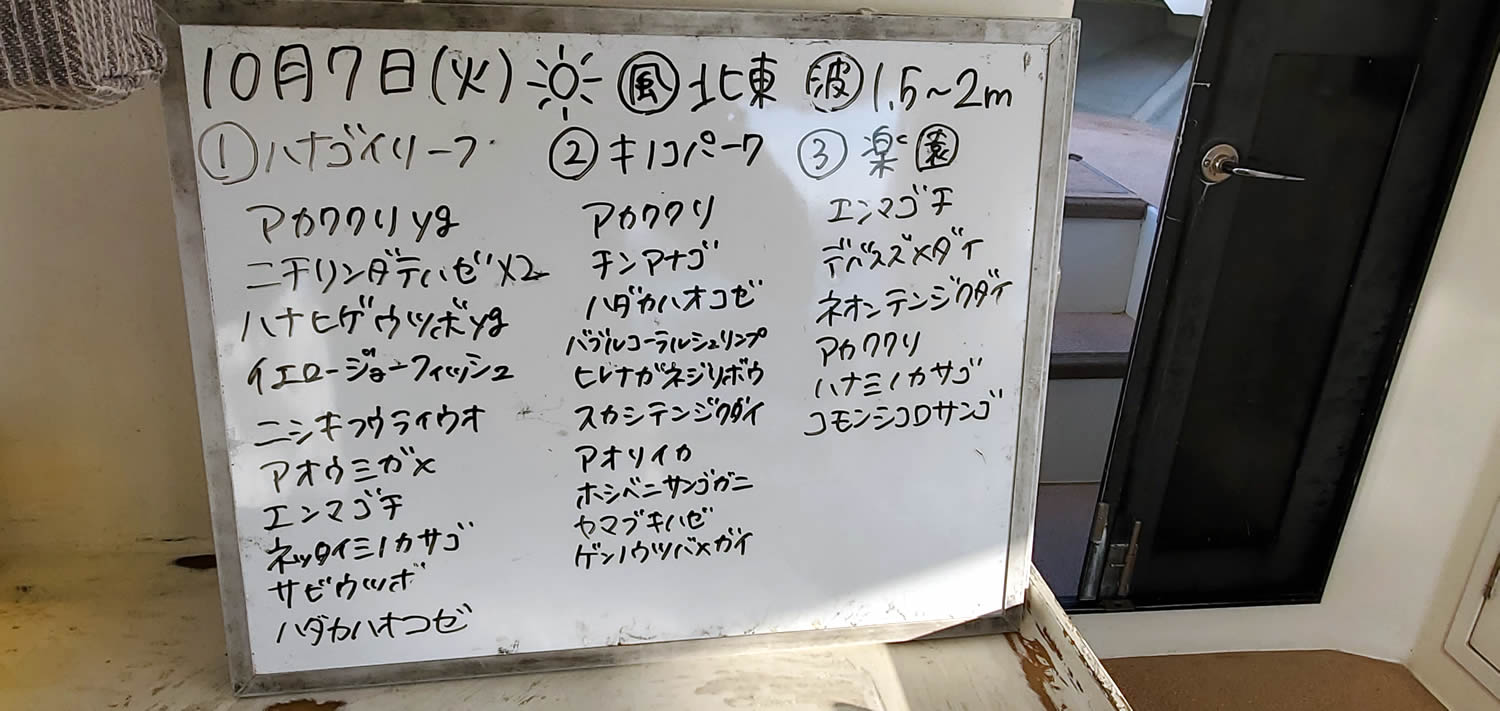 10月7日(火) ☀ 風 北東 波 1.5~2m
① ハナゴイリーフ
アカククリyg
ニチリンダテハゼ×2
ハナヒゲウツボyg
イエロージョーフィッシュ
ニシキフウライウオ
アオウミガメ
エンマゴチ
ネッタイミノカサゴ
サビウツボ
ハダカハオコゼ
② キノコパーク
アカククリ
チンアナゴ
ハダカハオコゼ
バブルコーラルシュリンプ
ヒレナガネジリンボウ
スカシテンジクダイ
アオリイカ
ホシベニサンゴガニ
ヤマブキハゼ
ゲンノウツバメガイ
③ 楽園
エンマゴチ
デバスズメダイ
ネオンテンジクダイ
アカククリ
ハナミノカサゴ
コモンシコロサンゴ